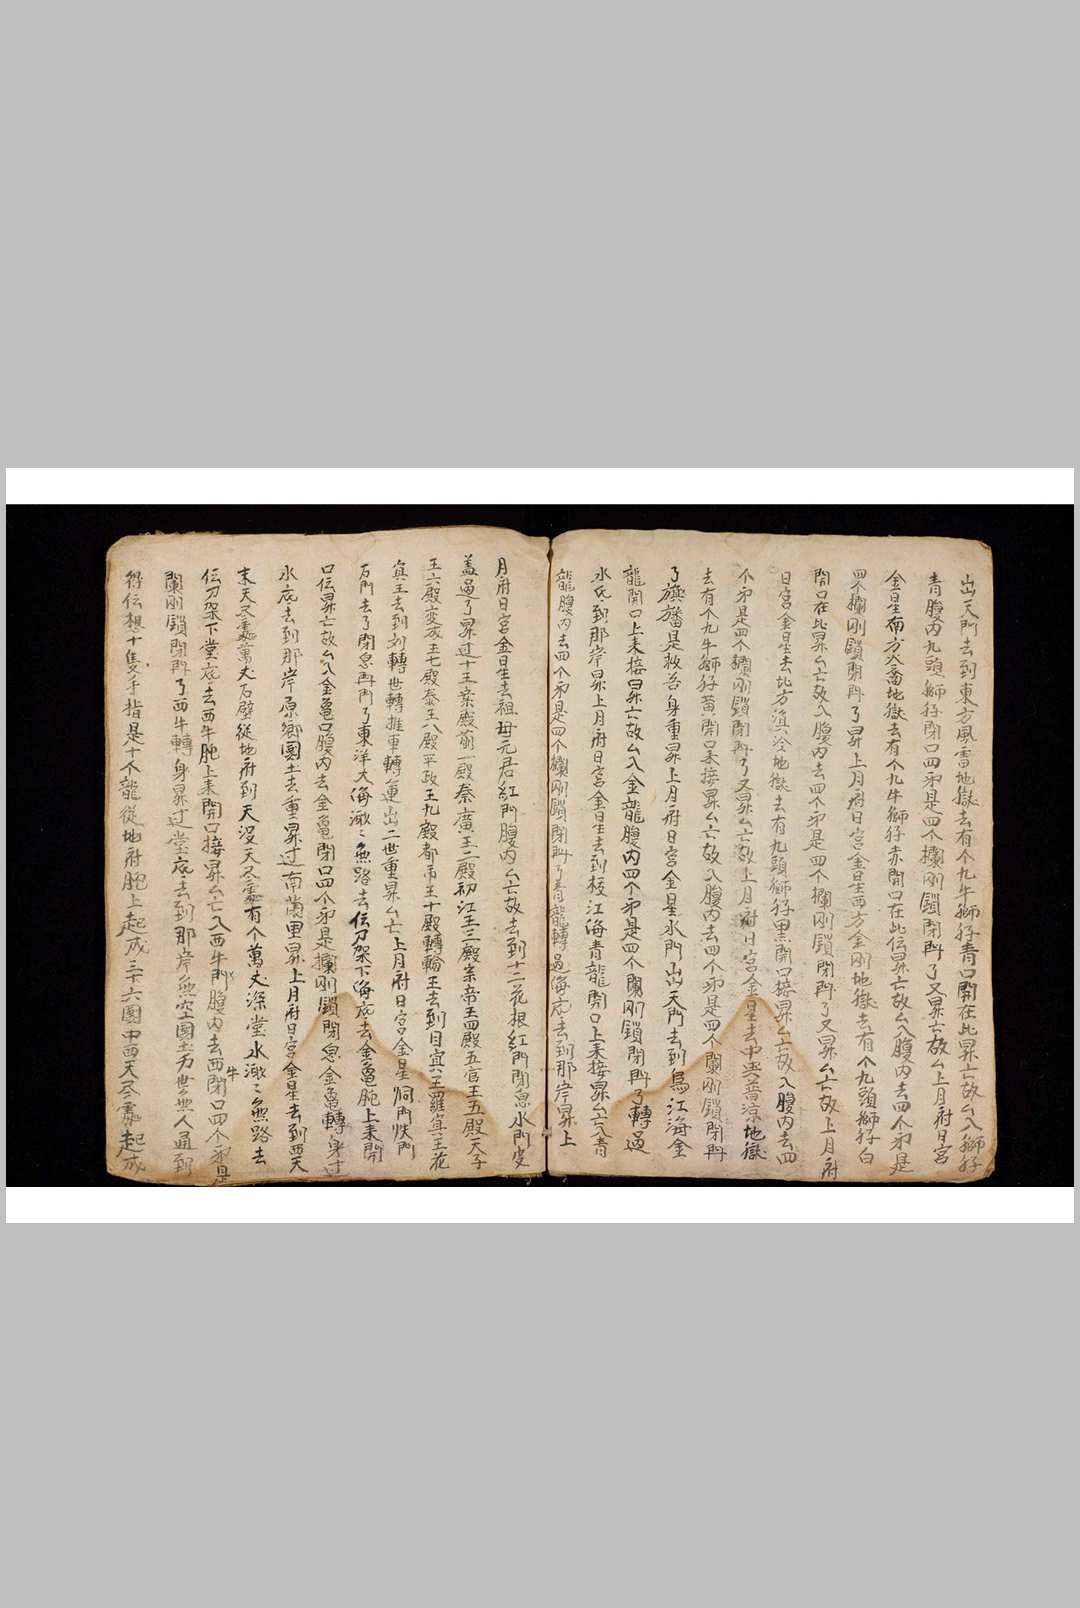 出天門去到東方風雷地獄去有个九牛獅仔青口開在此昇亡故厶入獅仔
青腹内九頭獅仔閉口四帀是四个攔刚鎖閉㪯了又昇亡故厶上月府日宮
金星南方火翁地獄去有个九牛獅仔赤開口在此伝昇亡故厶入腹内去四个帀是
四个攔刚鎖閉㪯了昇上月府日宮金星西方金刚地獄去有个九頭獅仔白
開口在此昇厶亡故入腹内去四个帀是四个攔刚鎖閉㪯了又昇厶亡故上月府
日宮金星去北方滇泠地獄去有九頭獅仔黒開口接昇厶亡故入腹内去四
个帀是四个攔刚鎖閉㪯了又昇厶亡故上月府日宮金星去中央普凉地獄
去有个九牛獅仔黄開口来接昇厶亡故入腹内去四个帀是四个攔刚鎖閉㪯
了旗旛是救苦身重昇上月府日宮金星水門出天門去到烏江海金
龍開口上来接昇亡故厶入金龍腹内四个帀是四个攔刚鎖閉㪯了轉過
水底到那岸昇上月府日宮金星去到枝江海青龍開口上来接昇厶亡入青
龍腹内去四个帀是四个攔刚鎖閉㪯了青龍轉過海底去到那岸昇上
月府日宮金星去祖母元君紅門腹内厶亡故去到十二花根紅門閉息水門皮
盖過了昇过十王案殿前一殿秦廣王二殿初江王三殿宗帝王四殿五官王五殿天子
王六殿变成王七殿泰王八殿平政王九殿都吊王十殿轉輪王去到日宜六王羅冥王花
冥王去到刘轉世轉推車轉運出二世重昇厶亡上月府日宮金星洞門快門
石門去了閉息㪯門了東洋大海澉々無路去伝刀架下海底去金亀肔上来開
口伝昇亡故厶入金亀口腹内去金亀閉口四个帀是攔刚鎖閉息金亀轉身过
水底去到那岸原鄉國土去重昇过南萬里昇上月府日宮金星去到西天
末天尽處萬丈石壁從地府到天没天尽處有个萬丈深堂水澉々無路去
伝刀架下堂底去西牛肔上来開口接昇厶亡入西牛門腹内去西牛閉口四个帀是
闌刚鎖閉㪯了西牛轉身昇过堂底去到那岸無空國土万世無人通到
得伝想十隻手指是十个龍從地府肔上起成三十六國中西天尽處起成